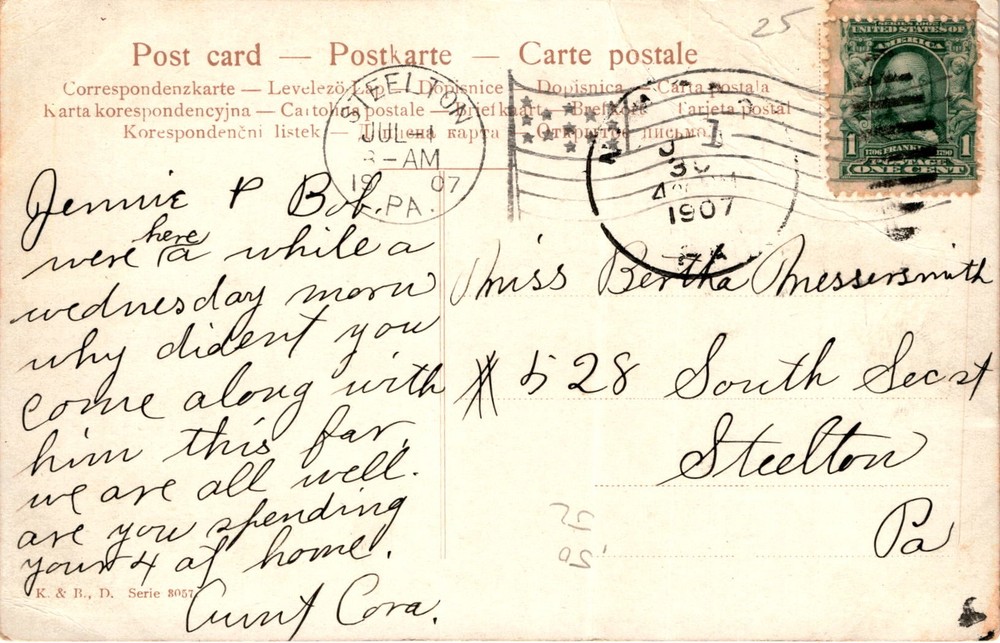 25
Post card — Postkarte — Carte postale
Correspondenzkarte — Dopisnice — Dopisnica — Carta postala
Karta korespondencyjna — Cartolina postale — Briefkaart — Brefkort — Tarjeta postal
Korespondenční listek — — Открытое письмо
STEELTON
JUL
3-AM
19 07
PA.
1
30
1907
UNITED STATES OF
AMERICA
1 1706 FRANKLIN 1790 1
POSTAGE
ONE CENT
Jennie & Bob.
were here a while a
wednesday morn
why dident you
come along with
him this far.
we are all well.
are you spending
your 4 at home.
Aunt Cora.
Miss Bertha Messersmith
# 528 South Sec st
Steelton
Pa
52
50
K. & B., D. Serie 3057